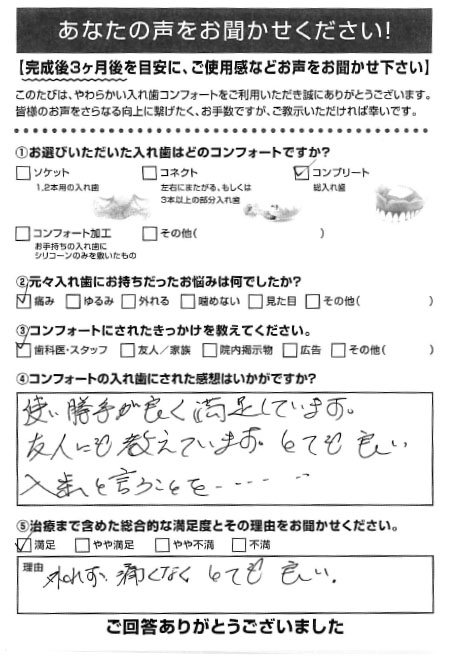 あなたの声をお聞かせください!
【完成後3ヶ月後を目安に、ご使用感などお声をお聞かせ下さい】
このたびは、やわらかい入れ歯コンフォートをご利用いただき誠にありがとうございます。
皆様のお声をさらなる向上に繋げたく、お手数ですが、ご教示いただければ幸いです。
①お選びいただいた入れ歯はどのコンフォートですか?
ソケット
1,2本用の入れ歯
コネクト
左右にまたがる、もしくは
3本以上の部分入れ歯
コンプリート
総入れ歯
コンフォート加工
お手持ちの入れ歯に
シリコーンのみを敷いたもの
その他( )
②元々入れ歯にお持ちだったお悩みは何でしたか?
痛み ゆるみ 外れる 噛めない 見た目 その他( )
③コンフォートにされたきっかけを教えてください。
歯科医・スタッフ 友人/家族 院内掲示物 広告 その他( )
④コンフォートの入れ歯にされた感想はいかがですか?
使い勝手が良く満足しています。
友人にも教えています。とても良い
入歯と言うことを……
⑤治療まで含めた総合的な満足度とその理由をお聞かせください。
満足 やや満足 やや不満 不満
理由 外れず、痛くなく とても 良い.
ご回答ありがとうございました